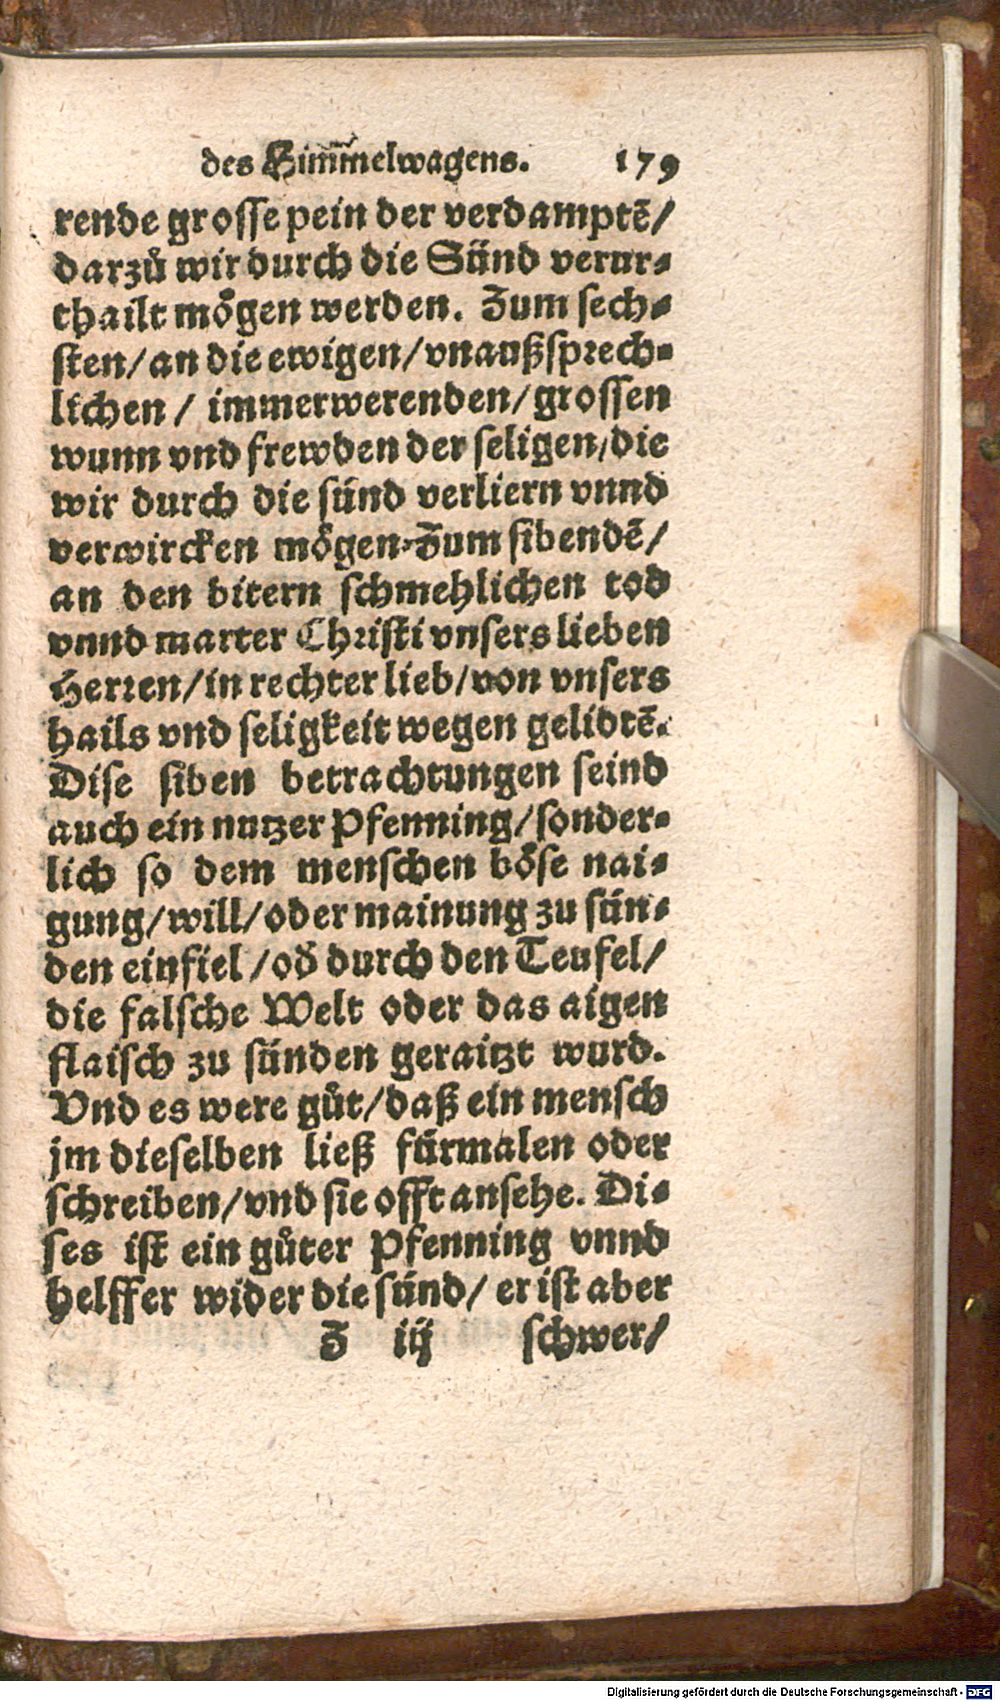 des Himmelwagens. 179
rende grosse pein der verdamptē/
darzů wir durch die Sünd verur⸗
thailt mögen werden. Zum sech⸗
sten/ an die ewigen/ vnaußsprech⸗
lichen/ immerwerenden/ grossen
wunn vnd frewden der seligen/ die
wir durch die sünd verliern vnnd
verwircken mögen. Zum sibendē/
an den bitern schmehlichen tod
vnnd marter Christi vnsers lieben
Herren/ in rechter lieb/ von vnsers
hails vnd seligkeit wegen gelidtē.
Dise siben betrachtungen seind
auch ein nutzer Pfenning/ sonder⸗
lich so dem menschen böse nai⸗
gung/ will/ oder mainung zu sün⸗
den einfiel/ od̄ durch den Teufel/
die falsche Welt oder das aigen
flaisch zu sünden geraitzt wurd.
Vnd es were gůt/ daß ein mensch
jm dieselben ließ fürmalen oder
schreiben/ vnd sie offt ansehe. Di⸗
ses ist ein gůter Pfenning vnnd
helffer wider die sünd/ er ist aber
Z iij schwer/
Digitalisierung gefördert durch die Deutsche Forschungsgemeinschaft - DFG